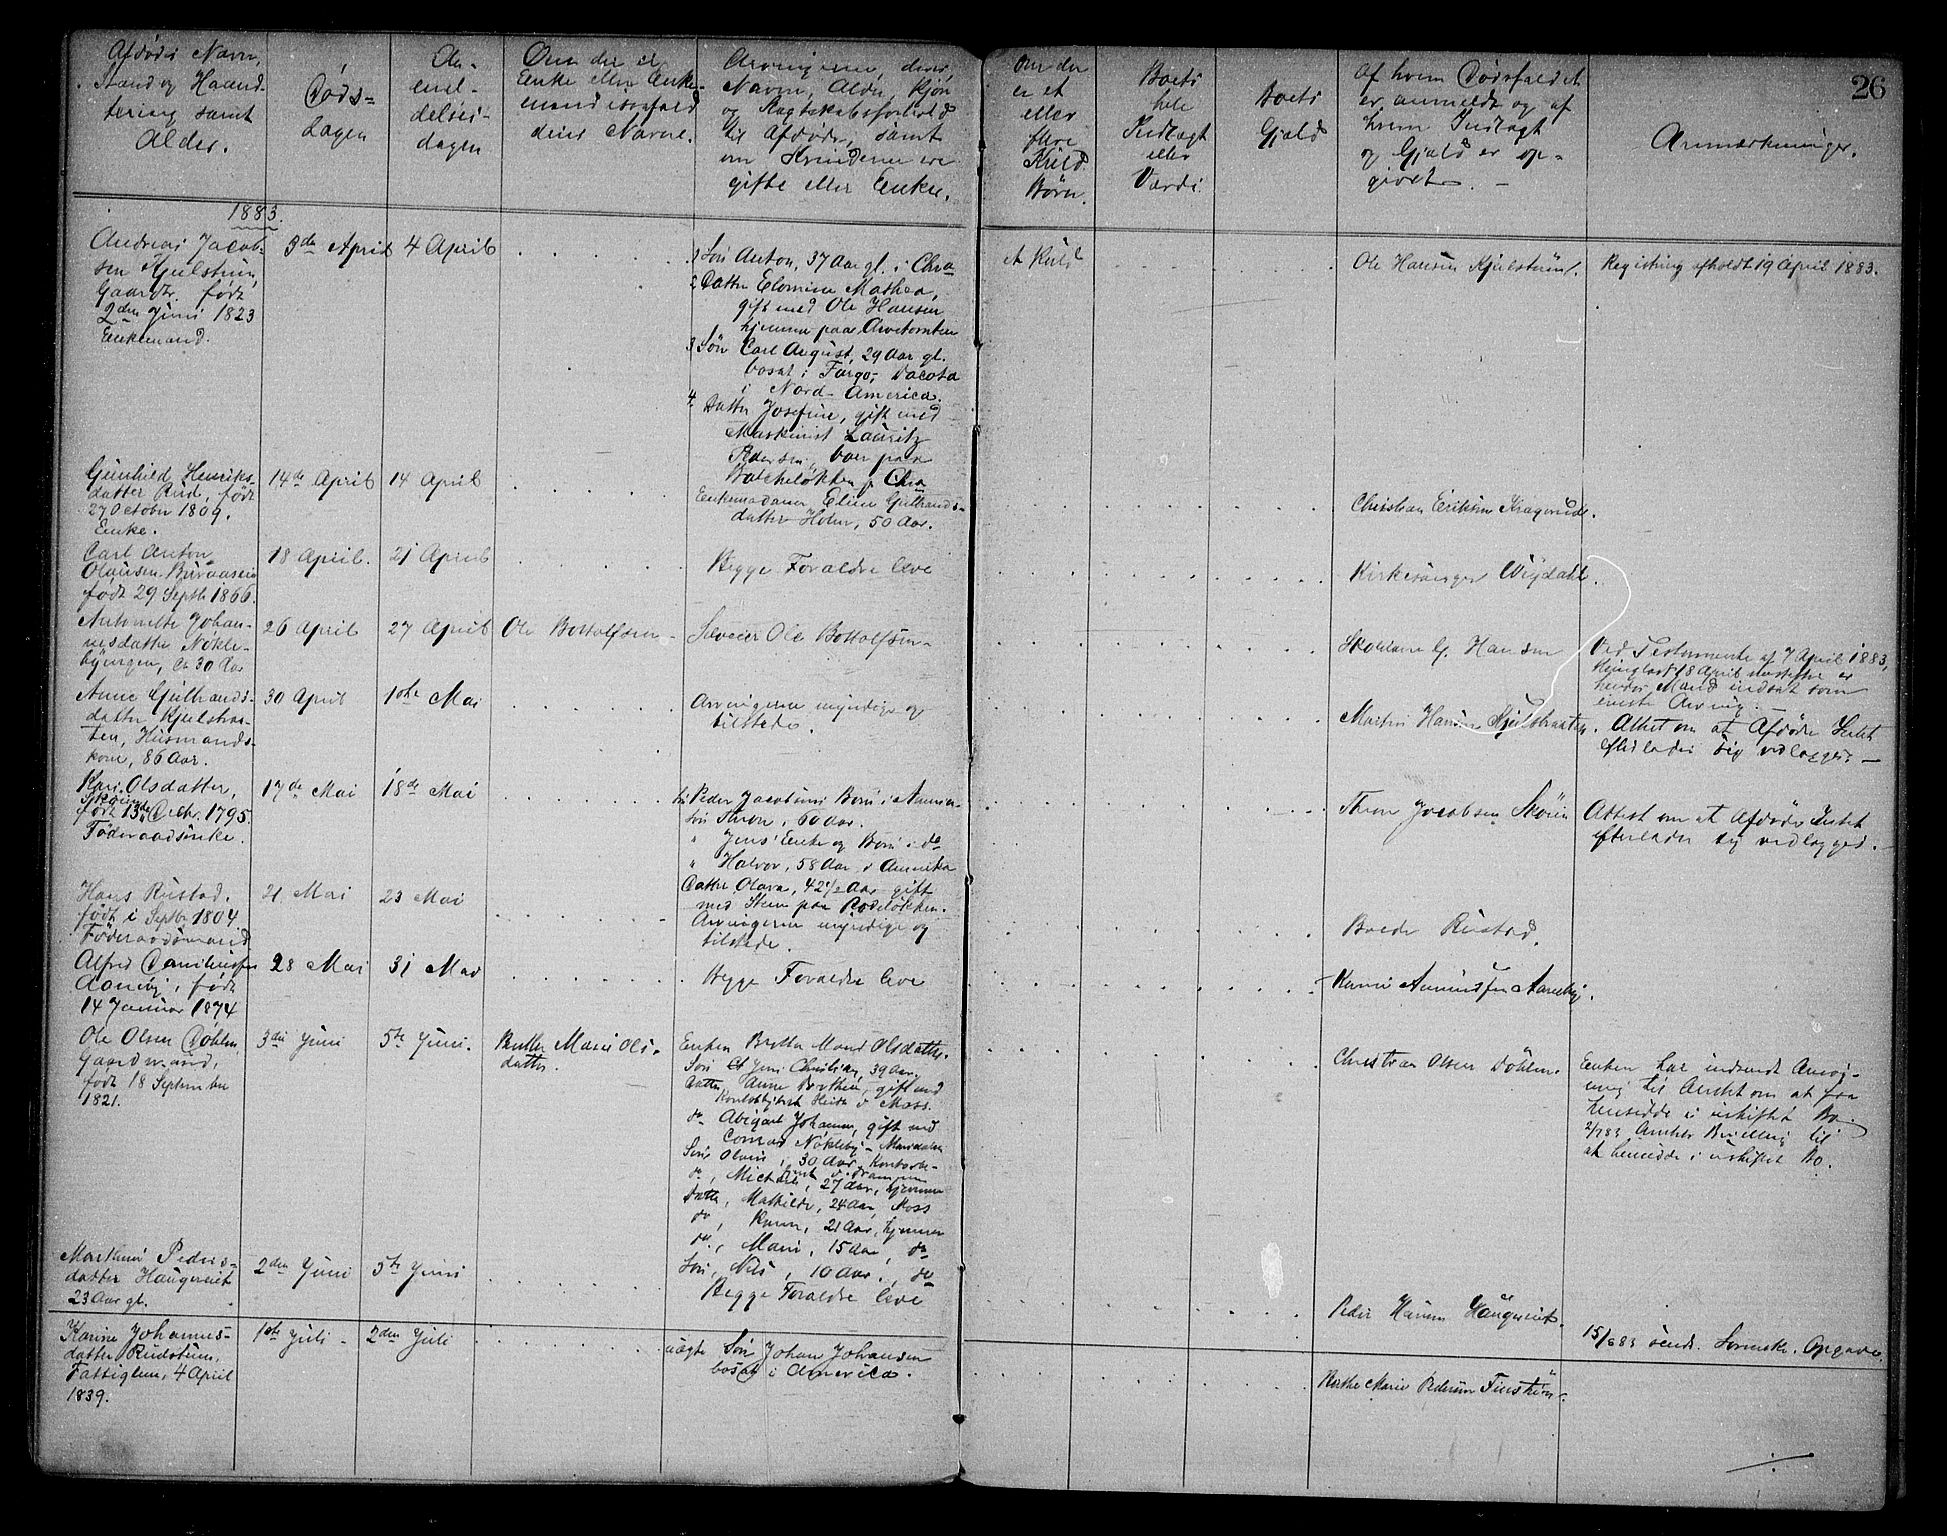 26
Afdødes Navn,
Stand og Haand-
tering samt
Alder.
Døds-
dagen
An-
mel-
delses-
dagen
Om der er
Enke eller Enke-
mand
deres Navne.
Arvingerne, deres
Navne, Alder, Kjøn
og Slægtskabsforhold
til Afdøde, samt
om Kvinderne ere
gifte eller Enker.
Om der
er et
eller
flere
Kuld
Børn.
Boets
hele
Indtægt
eller
Værdi.
Boets
Gjæld
Af hvem Dødsfaldet
er anmeldt og af
hvem Indtægt
og Gjæld er op-
givet. -
Anmærkninger.
1883.
Andreas Jacob-
sen Kjulstrun,
Gaardbr. født
2den Juni 1823
Enkemand.
3de April
4 April
1 Søn Anton, 37 Aar gl. i Chra
2 Datter Mathea,
gift med Ole Hansen
hjemme paa
3 Søn Carl August, 29 Aar gl.
bosat i Fargo, Dacota
i Nord-America.
4 Datter Josefine, gift med
Maskinist Lauritz
Pedersen, boer paa
Chra
et Kuld
Ole Hansen Kjulstrun.
Registring afholdt 19 April 1883.
Gunhild Henriks-
datter Rud, født
27 October 1809.
Enke.
14de April
14 April
Enkemadame Eline Gulbrands-
datter Holm, 50 Aar.
Christian Eriksen Kragerud.
Carl Anton
Olausen
født 29 Septbr 1866.
18 April.
21 April
Begge Forældre leve
Kirkesanger Wigdahl.
Antonette Johan-
nesdatter Nökle-
byengen, ca 30 Aar
26 April
27 April
Ole Bottolfsen
Ole Bottolfsen
G. Hansen
Ved Testamente af 7 April 1883,
thinglæst 18 April er
hendes Mand indsat som
eneste Arving. -
Anne Gulbrands-
datter Kjulstras-
ten, Husmands-
kone, 86 Aar.
30 April
1ste Mai
Arvingerne myndige og
tilstede.
Martin Hansen
Attest om at Afdøde Intet
efterlader sig vedlægges -
Kari Olsdatter,
Skøien
født 13de Decbr. 1795.
Föderaadsenke.
17de Mai
18de Mai
Peder Jacobsens Børn i America
Søn Thron, 60 Aar.
" Jens' Enke og Børn i do
" Halvor, 58 Aar i Amerika
Datter Olava, 42 1/2 Aar gift
med Steen paa Rodeløkken.
Thron Jacobsen Skøien
Attest om at Afdøde Intet
efterlader sig vedlægges. -
Hans Rustad,
født i Septbr 1804
Föderaadsmand
21 Mai
23 Mai
Arvingerne myndige og
tilstede.
Rustad.
Alfred
Aaneby, født
14 Januar 1874
28 Mai
31 Mai
Begge Forældre leve
Aaneby.
Ole Olsen Døhlen
Gaardmand,
født 18 September
1821.
3die Juni
5te Juni.
Marie Ols-
datter.
Enken Marie Olsdatter.
Søn Christian, 39 Aar,
Datter, Anne Dorthea, gift med
i Moss.
do Johanne, gift med
Conrad Nökleby
Søn Olaus, 30 Aar, Kontorbe-
tjent i Drammen
do, 27 Aar, hjemme
Datter, Mathilde, 24 Aar, Moss
do, Karen, 21 Aar, hjemme
do, Marie, 15 Aar, do
Søn, Nils, 10 Aar, do
Christian Olsen Döhlen.
Enken har indsendt Ansøg-
ning til Amtet om at faa
hensidde i uskiftet Bo.
2/7 83 Amtets Bevilling til
at hensidde i uskiftet Bo.
Mathea Peders-
datter Haugereiet
23 Aar gl.
2den Juni
5te Juni
Begge Forældre leve
Peder Hansen Haugereiet.
15/6 83 Opgave.
Karine Johannes-
datter Rudstuen,
Fattiglem, 4 April
1839.
1ste Juli
2den Juli
uægte Søn Johan Johansen
bosat i America.
Marie Pedersen